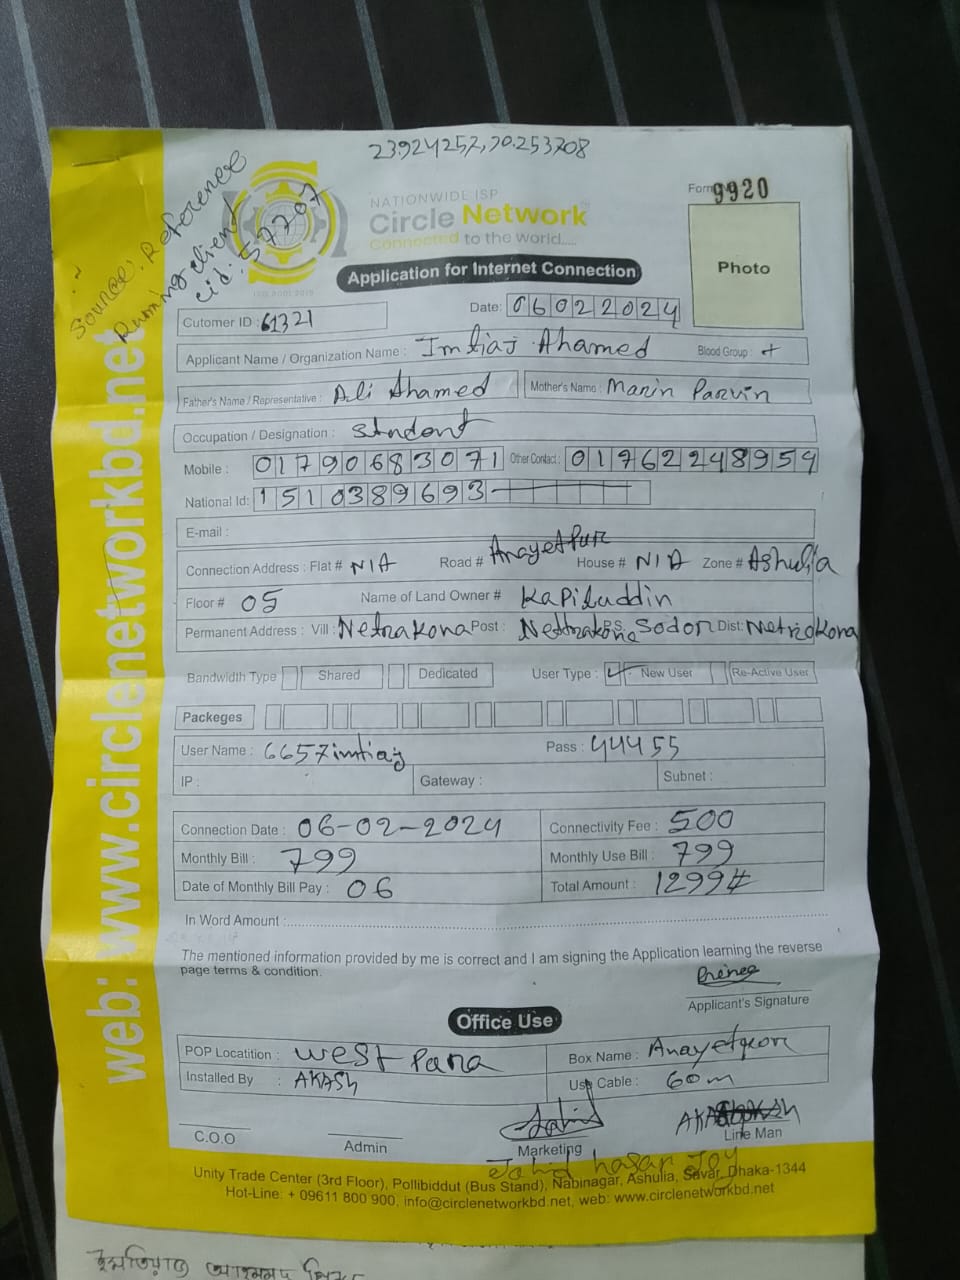 23924257,90.253708
Source: Reference
Running client
cid: 57707
NATIONWIDE ISP
Circle Network
Connected to the world.....
ISO 9001:2015
Form 9920
Photo
Application for Internet Connection
Cutomer ID : 61321
Date: 06022024
Applicant Name / Organization Name : Imtiaj Ahamed Blood Group : +
Father's Name / Representative : Ali Ahamed Mother's Name : Marin Parvin
Occupation / Designation : Stndont
Mobile : 01790683071 Other Contact : 01762248959
National Id: 1510389693
E-mail :
Connection Address : Flat # N/A Road # Anayetpur House # N/A Zone # Ashulia
Floor # 05 Name of Land Owner # Kapiluddin
Permanent Address : Vill : Netrakona Post : Nettrakona P.S. Sodor Dist: Netrokona
Bandwidth Type Shared Dedicated User Type : New User Re-Active User
Packeges
User Name : 6657imtiaj Pass : 44455
IP : Gateway : Subnet :
Connection Date : 06-02-2024 Connectivity Fee : 500
Monthly Bill : 799 Monthly Use Bill : 799
Date of Monthly Bill Pay : 06 Total Amount : 1299
In Word Amount :
The mentioned information provided by me is correct and I am signing the Application learning the reverse
page terms & condition.
Applicant's Signature
Office Use
POP Locatition : West Para Box Name :
Installed By : AKASH Use Cable : 60m
C.O.O Admin Marketing Line Man
Jahid hasan Joy
Unity Trade Center (3rd Floor), Pollibiddut (Bus Stand), Nabinagar, Ashulia, Savar, Dhaka-1344
Hot-Line: + 09611 800 900, info@circlenetworkbd.net, web: www.circlenetworkbd.net
web: www.circlenetworkbd.net
ইমতিয়াজ আহমেদ